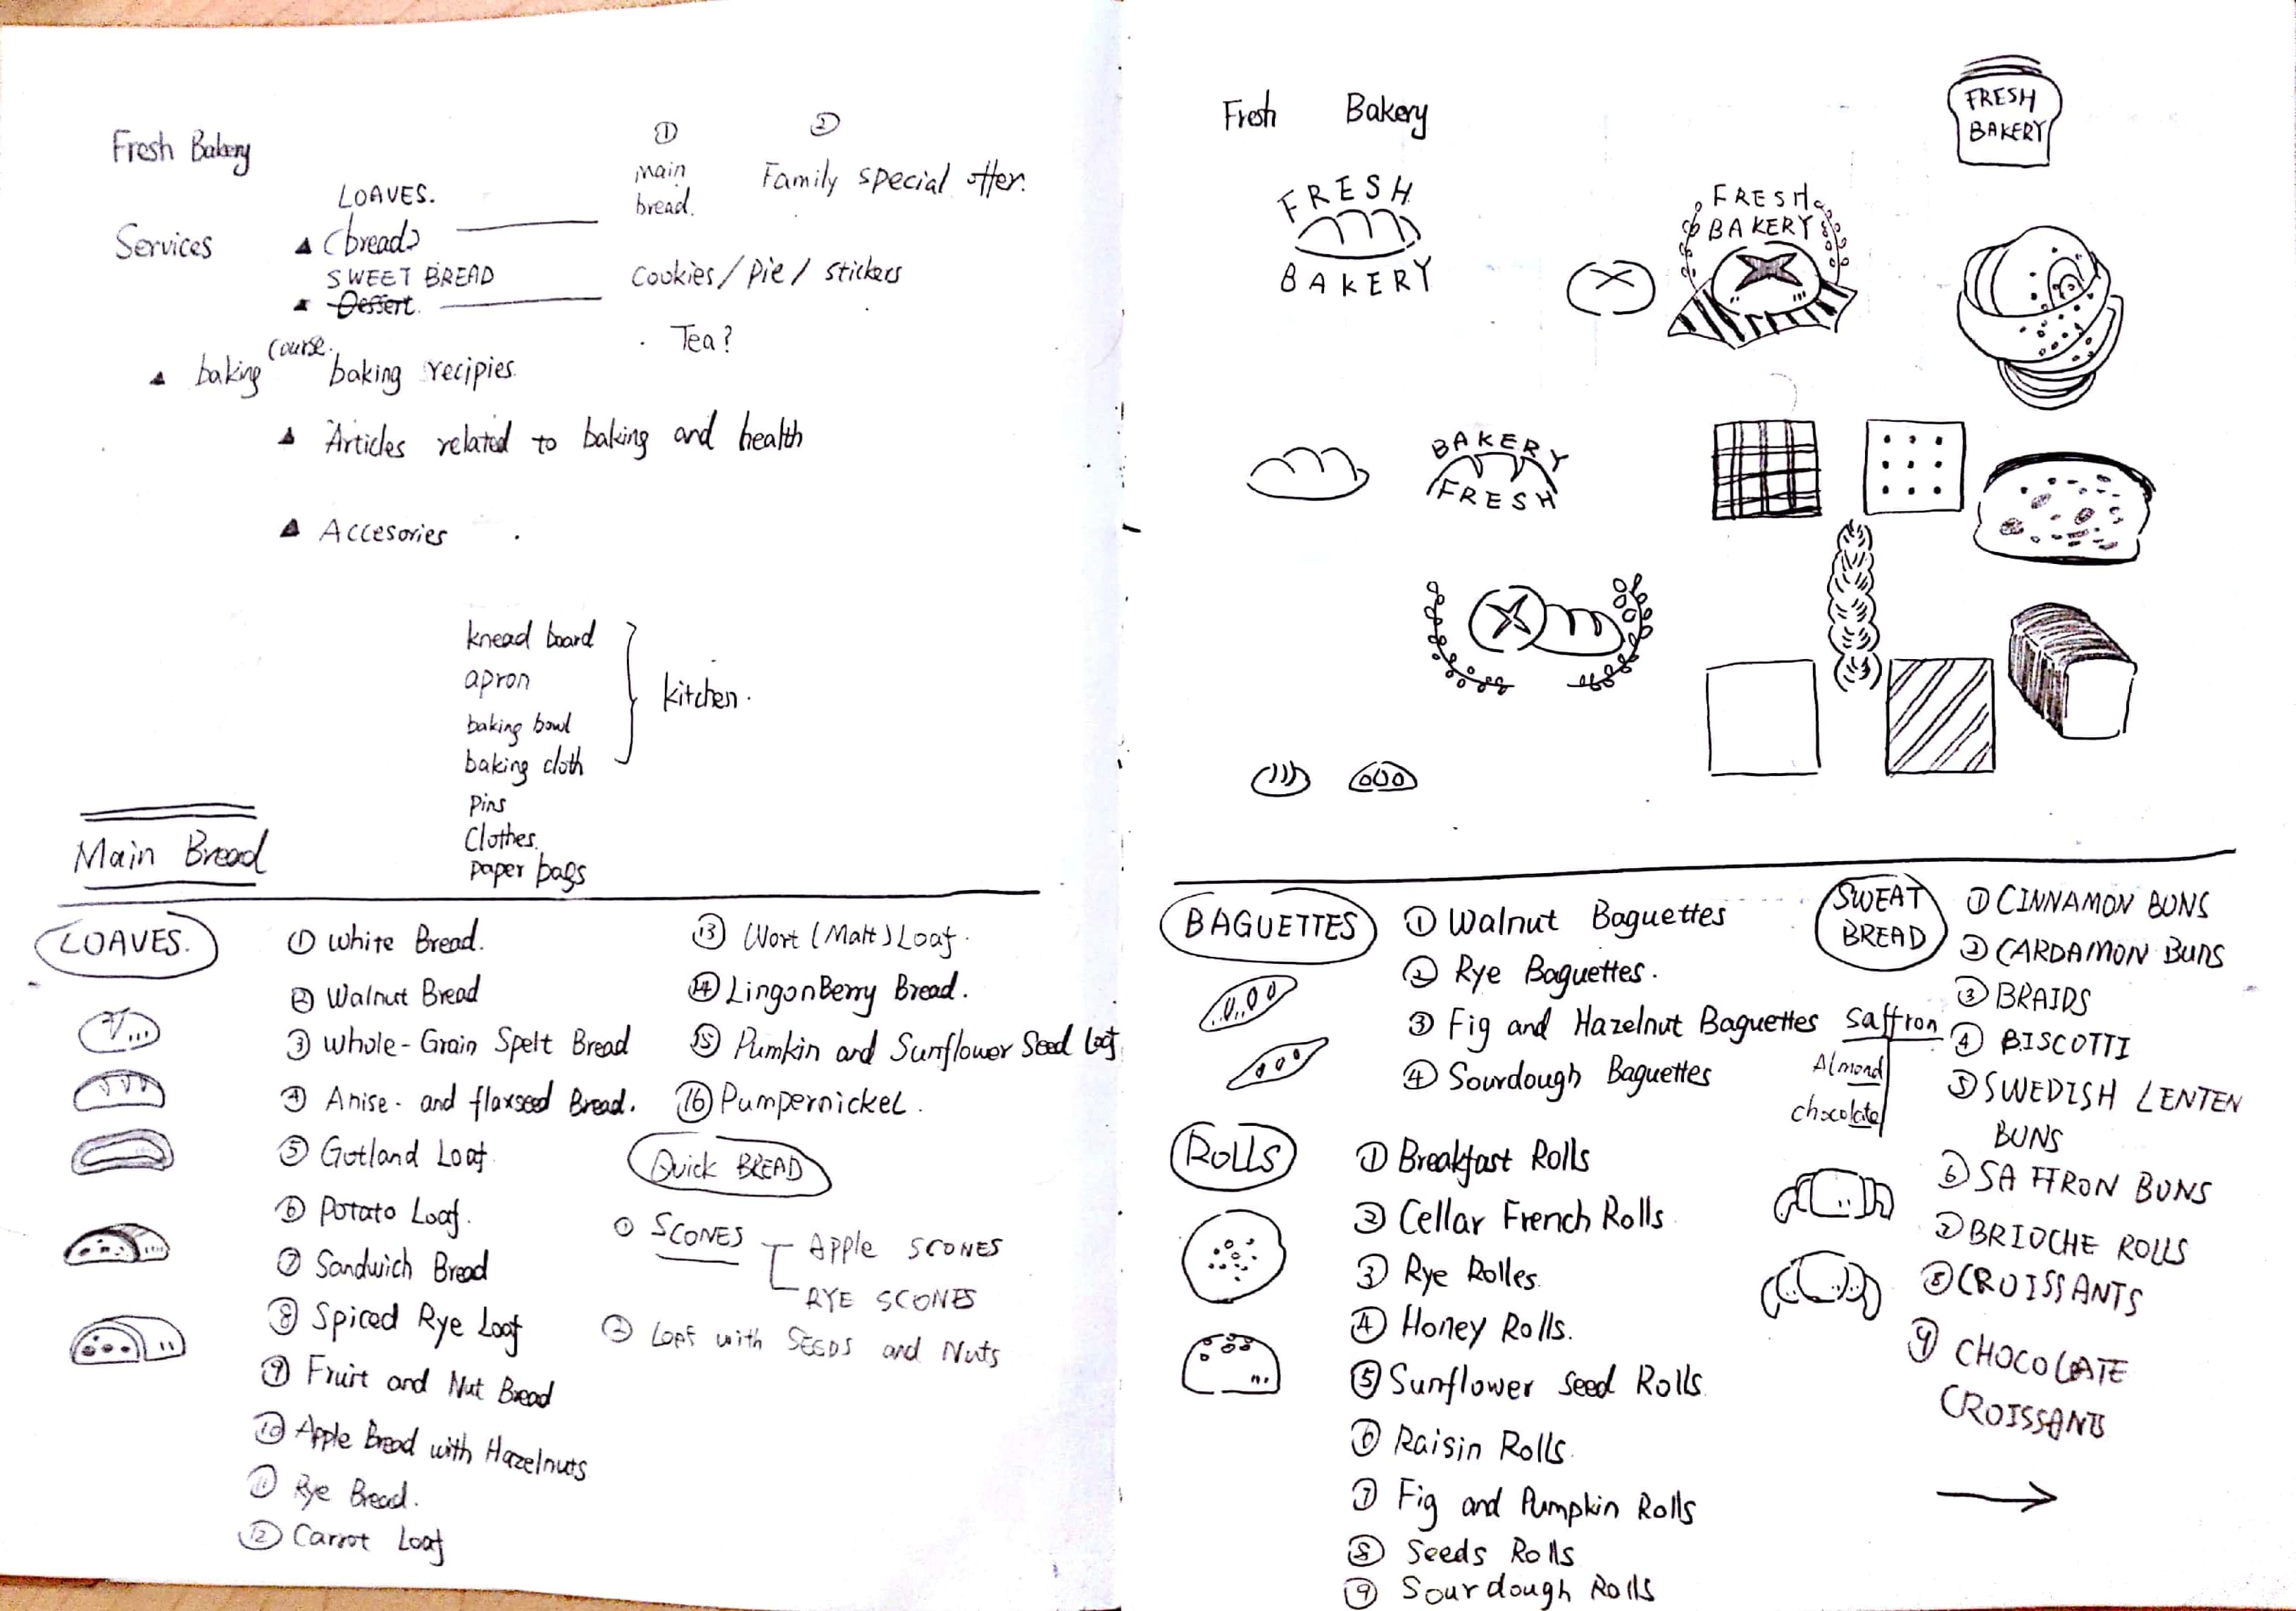 Fresh Bakery
①
②
main
bread.
Family special offer.
Services
LOAVES.
▲ (bread)
SWEET BREAD
▲ Dessert.
Cookies / pie / stickers
Tea?
▲ baking course. baking recipies.
▲ Articles related to baking and health
▲ Accesories
knead board
apron
baking bowl
baking cloth
kitchen.
pins
Clothes.
paper bags
Main Bread
LOAVES.
① White Bread.
② Walnut Bread
③ Whole-Grain Spelt Bread
④ Anise- and flaxseed Bread.
⑤ Gotland Loaf
⑥ Potato Loaf.
⑦ Sandwich Bread
⑧ Spiced Rye Loaf
⑨ Fruit and Nut Bread
⑩ Apple Bread with Hazelnuts
⑪ Rye Bread.
⑫ Carrot Loaf
⑬ Wort (Malt) Loaf.
⑭ LingonBerry Bread.
⑮ Pumkin and Sunflower Seed Loaf
⑯ Pumpernickel.
Quick BREAD
① SCONES
Apple SCONES
RYE SCONES
② Loaf with SEEDS and Nuts
Fresh Bakery
FRESH
BAKERY
FRESH
BAKERY
FRESH
BAKERY
BAKERY
FRESH
BAGUETTES
① Walnut Baguettes
② Rye Baguettes.
③ Fig and Hazelnut Baguettes
④ Sourdough Baguettes
ROLLS
① Breakfast Rolls
② Cellar French Rolls
③ Rye Rolles.
④ Honey Rolls.
⑤ Sunflower seed Rolls
⑥ Raisin Rolls.
⑦ Fig and Pumpkin Rolls
⑧ Seeds Rolls
⑨ Sourdough Rolls
SWEAT
BREAD
① CINNAMON BUNS
② CARDAMON BUNS
③ BRAIDS
④ BISCOTTI
saffron
Almond
chocolate
⑤ SWEDISH LENTEN
BUNS
⑥ SAFFRON BUNS
⑦ BRIOCHE ROLLS
⑧ CROISSANTS
⑨ CHOCOLATE
CROISSANTS